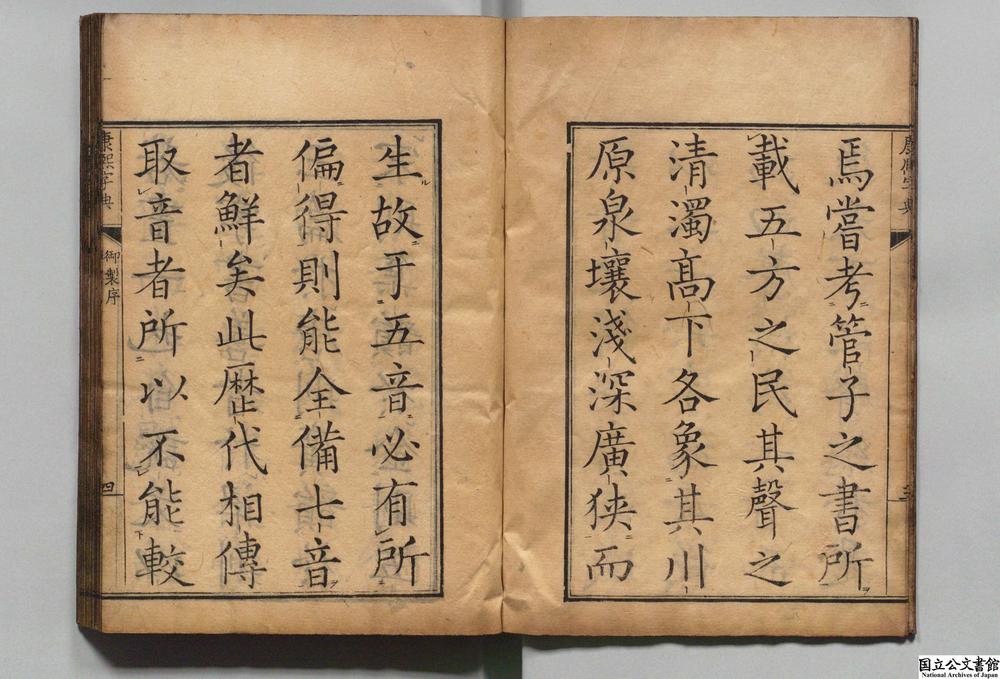 焉嘗考管子之書所
載五方之民其聲之
清濁高下各象其川
原泉壤淺深廣狹而
生故于五音必有所
偏得則能全備七音
者鮮矣此歷代相傳
取音者所以不能較
康熙字典
御製序
四
国立公文書館
National Archives of Japan